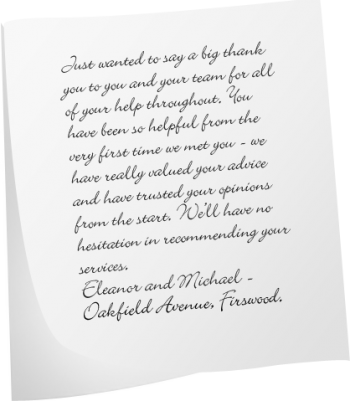 Just wanted to say a big thank
you to you and your team for all
of your help throughout. You
have been so helpful from the
very first time we met you - we
have really valued your advice
and have trusted your opinions
from the start. We'll have no
hesitation in recommending your
services.
Eleanor and Michael -
Oakfield Avenue, Firswood.